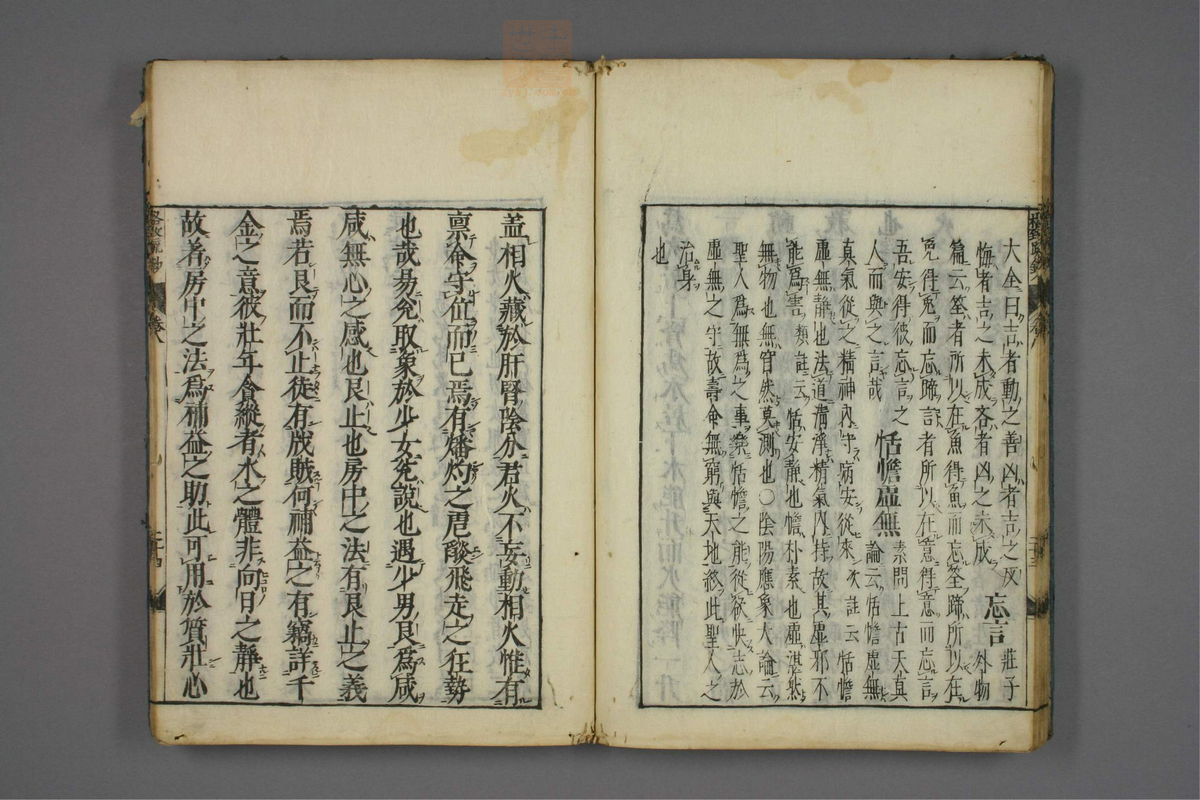 大全曰吉者動之善凶者吉之反
悔者吉之未成吝者凶之未成　忘言　莊子外物
篇云筌者所以在魚得魚而忘筌蹄所以在
兔得兔而忘蹄言者所以在意得意而忘言
吾安得彼忘言之
人而與之言哉　恬憺虛無　素問上古天真
論云恬憺虛無
真氣從之精神內守病安從來　次註云恬憺
虛無靜也法道清淨精氣內持故其虛邪不
能爲害　類註云恬安靜也憺朴素也虛湛然
無物也無窅然莫測也○陰陽應象大論云
聖人爲無爲之事樂恬憺之能從欲快志於
虛無之守故壽命無窮與天地終此聖人之
治身
也
蓋相火藏於肝腎陰分君火不妄動相火惟有
禀命守位而已焉有燔灼之虐燄飛走之狂勢
也哉易兊取象於少女兊說也遇少男艮爲咸
咸無心之感也艮止也房中之法有艮止之義
焉若艮而不止徒有戕賊何補益之有竊詳千
金之意彼壯年貪縱者水之體非向日之靜也
故著房中之法爲補益之助此可用於質壯心